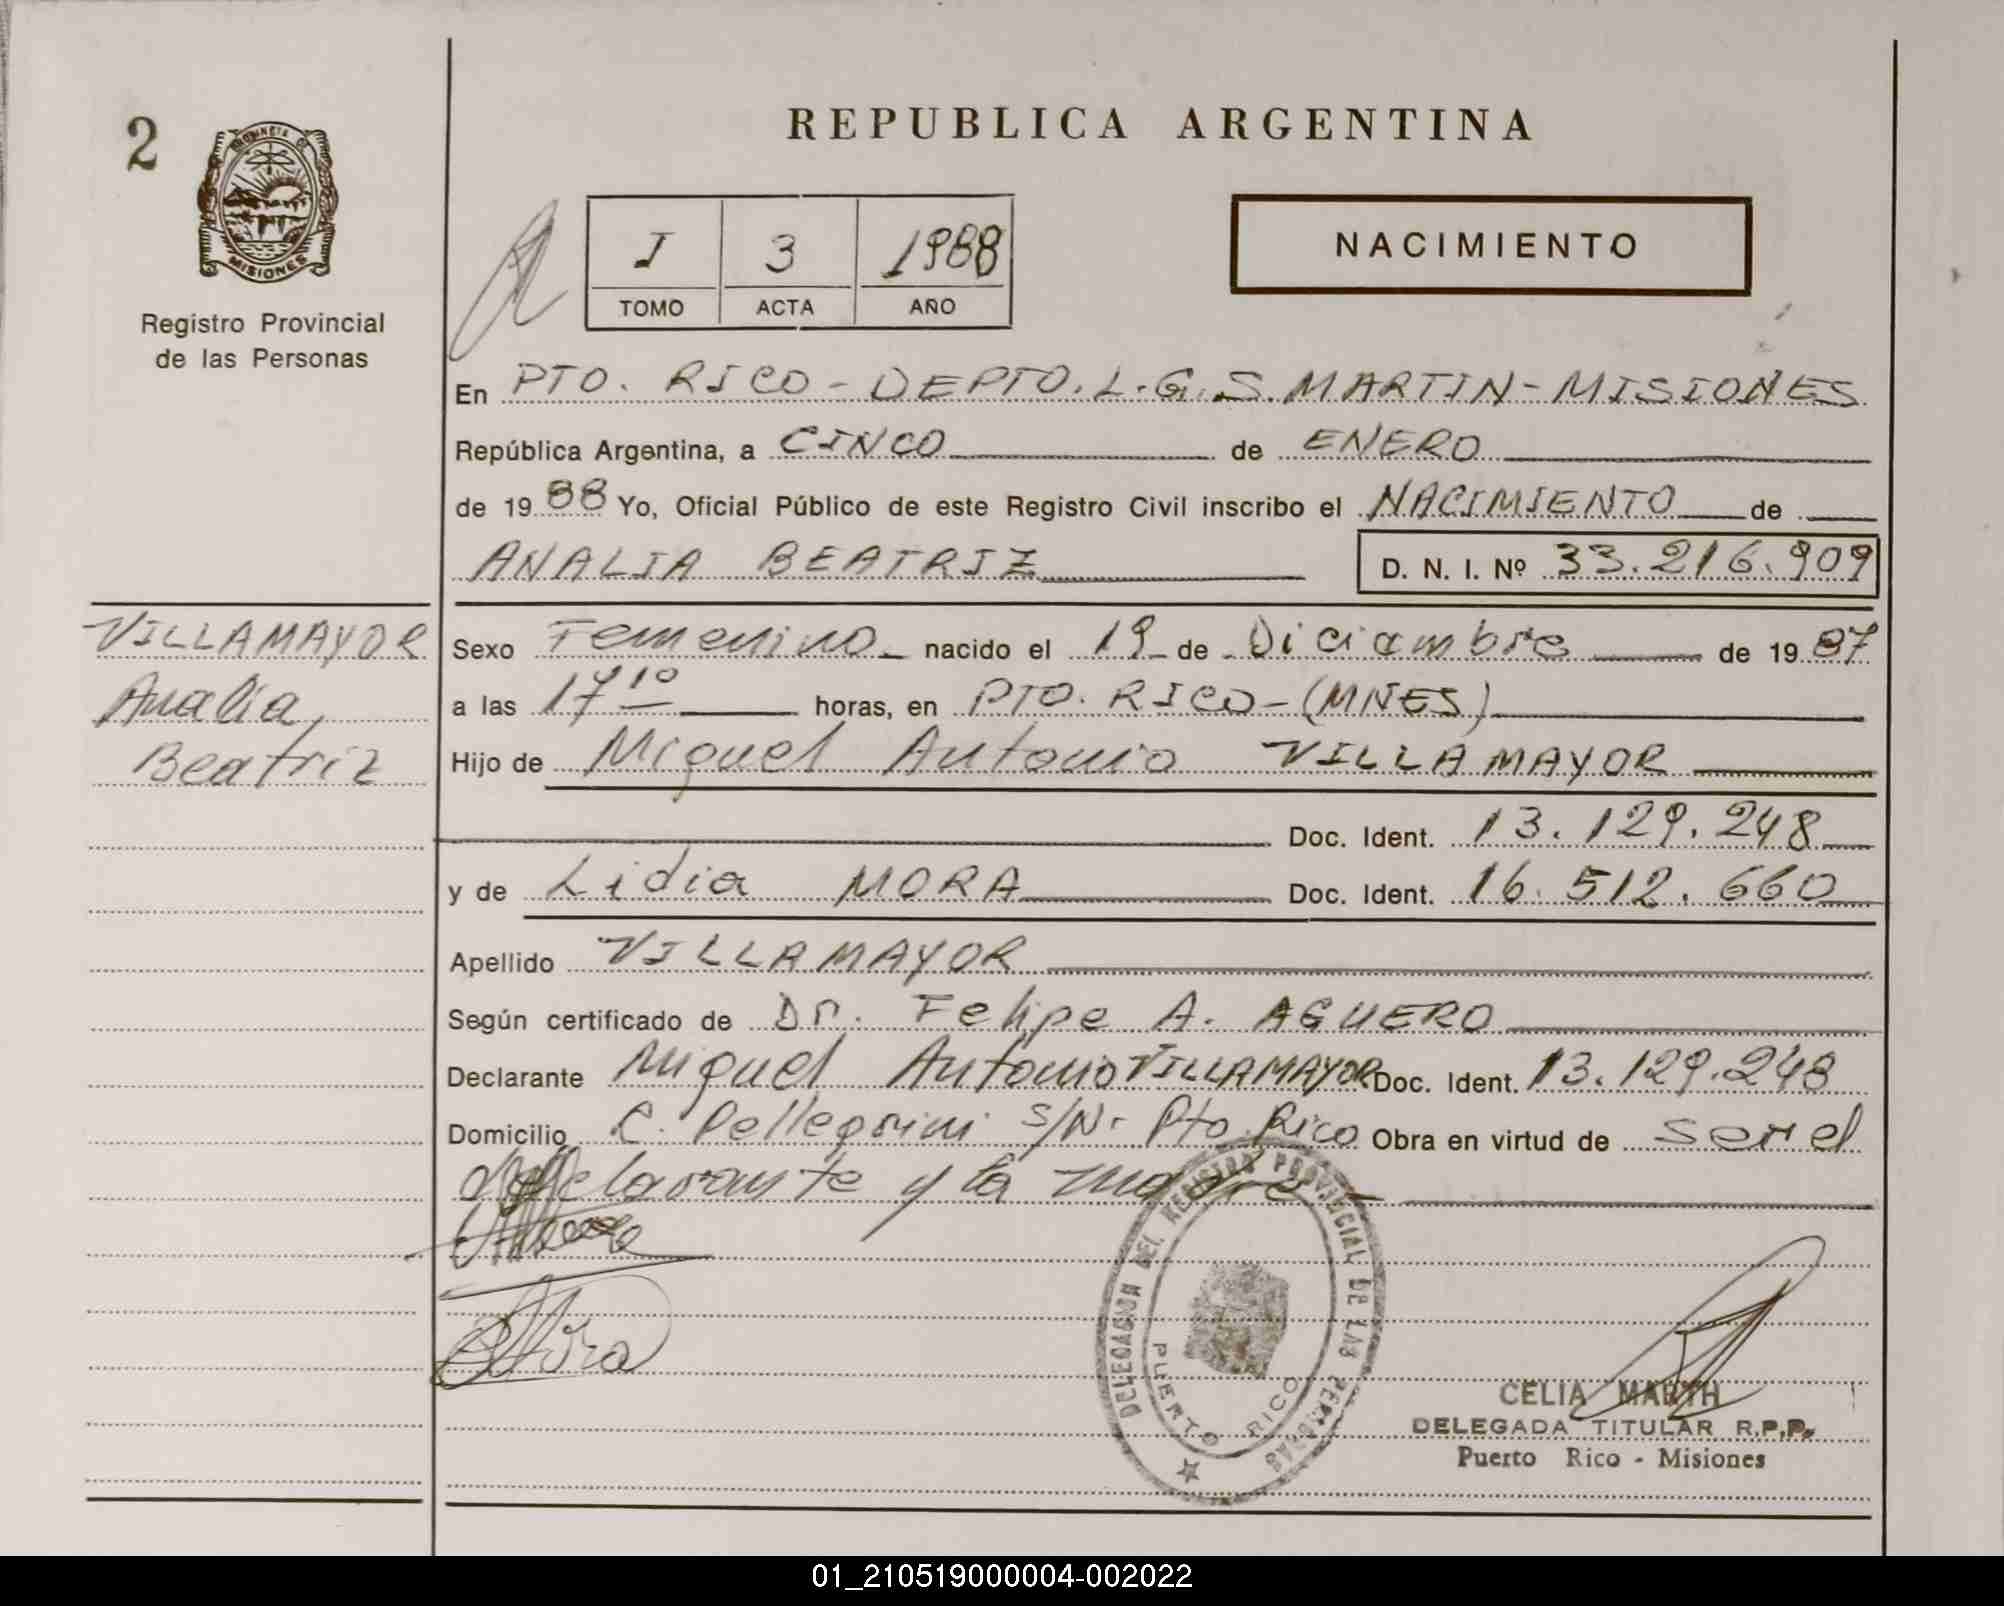 REPUBLICA ARGENTINA
2
PROVINCIA DE
MISIONES
Registro Provincial
de las Personas
I 3 1988
TOMO ACTA AÑO
NACIMIENTO
En PTO. RICO - DEPTO. L. G. S. MARTIN - MISIONES
República Argentina, a CINCO de ENERO
de 19 88 Yo, Oficial Público de este Registro Civil inscribo el NACIMIENTO de
ANALIA BEATRIZ D. N. I. Nº 33.216.909
VILLAMAYOR
Analia,
Beatriz
Sexo Femenino nacido el 19 de Diciembre de 19 87
a las 17 10 horas, en PTO. RICO - (MNES)
Hijo de Miguel Antonio VILLAMAYOR
Doc. Ident. 13.129.248
y de Lidia MORA Doc. Ident. 16.512.660
Apellido VILLAMAYOR
Según certificado de Dr. Felipe A. AGUERO
Declarante Miguel Antonio VILLAMAYOR Doc. Ident. 13.129.248
Domicilio C. Pellegrini S/N- Pto Rico Obra en virtud de ser el
declarante y la madre -
Mora
DELEGACION DEL REGISTRO PROVINCIAL DE LAS PERSONAS
PUERTO RICO
CELIA MARTH
DELEGADA TITULAR R.P.P.
Puerto Rico - Misiones
01_210519000004-002022